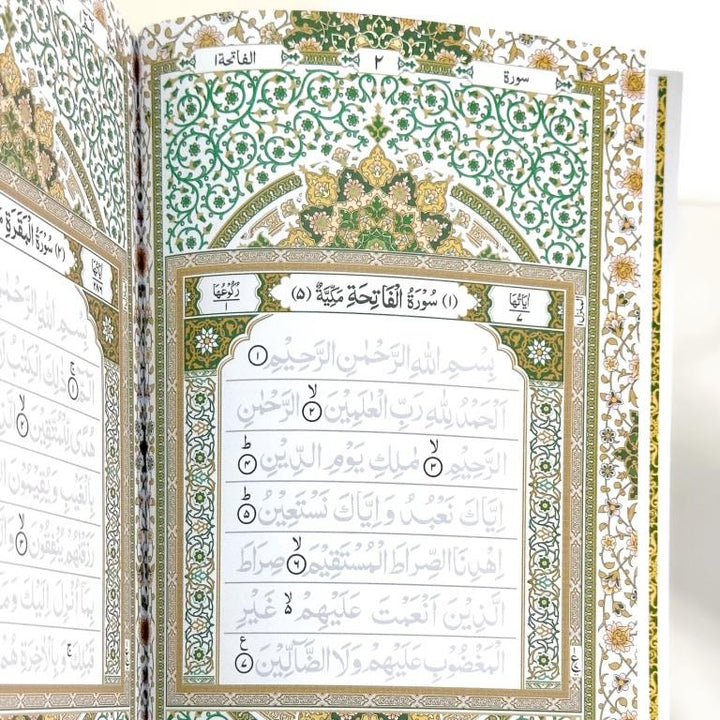 سورة ٢ الفاتحة ١
اٰيَاتُهَا ٧ (١) سُوْرَةُ الْفَاتِحَةِ مَكِّيَّةٌ (٥) رُكُوْعُهَا ١
بِسْمِ اللّٰهِ الرَّحْمٰنِ الرَّحِيْمِ ١
اَلْحَمْدُ لِلّٰهِ رَبِّ الْعٰلَمِيْنَ ۙ ٢ الرَّحْمٰنِ
الرَّحِيْمِ ۙ ٣ مٰلِكِ يَوْمِ الدِّيْنِ ؕ ٤
اِيَّاكَ نَعْبُدُ وَ اِيَّاكَ نَسْتَعِيْنُ ؕ ٥
اِهْدِنَا الصِّرَاطَ الْمُسْتَقِيْمَ ۙ ٦ صِرَاطَ
الَّذِيْنَ اَنْعَمْتَ عَلَيْهِمْ ۙ۬ غَيْرِ
الْمَغْضُوْبِ عَلَيْهِمْ وَلَا الضَّآلِّيْنَ ࣖ ٧
اٰيَاتُهَا ٢٨٦ (٢) سُوْرَةُ الْبَقَرَةِ
بِسْمِ اللّٰهِ الرَّحْمٰنِ
ذٰلِكَ الْكِتٰبُ ۚ ١
هُدًى لِّلْمُتَّقِيْنَ ۙ ٢
بِالْغَيْبِ وَ يُقِيْمُوْنَ
رَزَقْنٰهُمْ يُنْفِقُوْنَ ۙ ٣
بِمَآ اُنْزِلَ اِلَيْكَ وَ
قَبْلِكَ ۚ وَ بِالْاٰخِرَةِ هُمْ